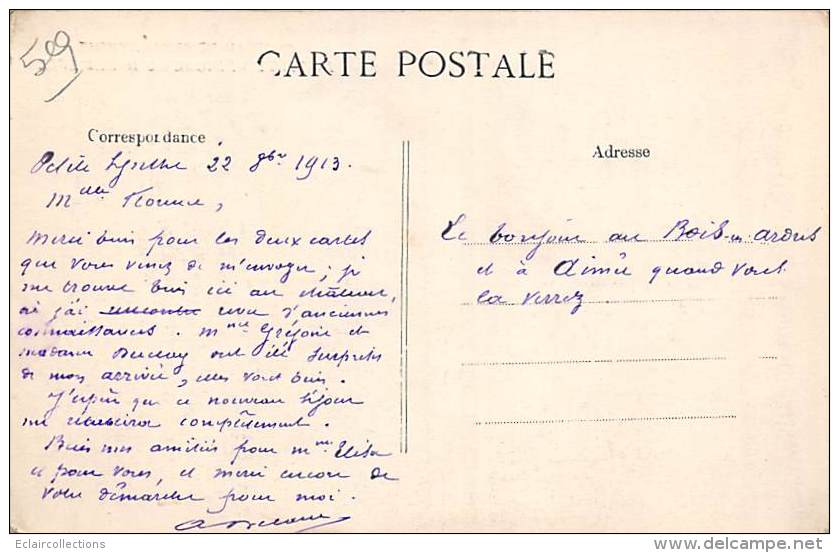 59
CARTE POSTALE
Correspondance
Adresse
Petite Synthe 22 9bre 1913.
Mlle Florence,
Merci bien pour les deux cartes
que vous venez de m'envoyer ; je
me trouve bien ici au château,
où j'ai rencontré revu d'anciennes
connaissances. Mme Grégoire et
madame ont été surprises
de mon arrivée, elles vont bien.
J'espère que ce nouveau séjour
me rétablira complètement.
Bien mes amitiés pour Mme Elisa
et pour vous, et merci encore de
votre démarche pour moi.
Le bonjour au Bois-en-ardres
et à Aimée quand vous
la verrez.
Eclaircollections
www.delcampe.net